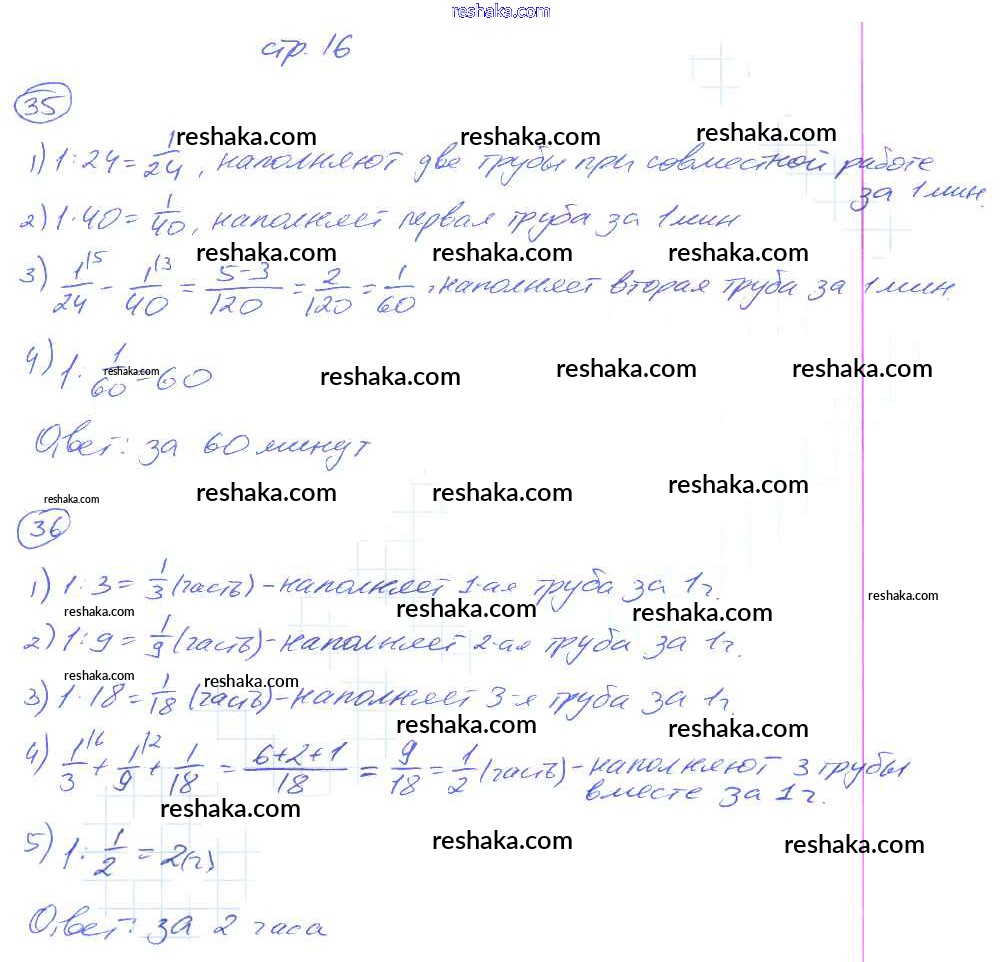 reshaka.com
стр. 16
35
reshaka.com reshaka.com reshaka.com
1) 1:24=1/24, наполняют две трубы при совместной работе
за 1 мин.
2) 1:40=1/40, наполняет первая труба за 1 мин
reshaka.com reshaka.com reshaka.com
3) 1/24 |5 - 1/40 |3 = 5-3/120 = 2/120 = 1/60, наполняет вторая труба за 1 мин.
4) 1:1/60=60
reshaka.com reshaka.com reshaka.com reshaka.com
Ответ: за 60 минут
reshaka.com reshaka.com reshaka.com reshaka.com
36
1) 1:3=1/3 (часть)-наполняет 1-ая труба за 1ч.
reshaka.com reshaka.com reshaka.com reshaka.com
2) 1:9=1/9 (часть)-наполняет 2-ая труба за 1ч.
reshaka.com reshaka.com
3) 1:18=1/18 (часть)-наполняет 3-я труба за 1ч.
reshaka.com reshaka.com
4) 1/3 |6 + 1/9 |2 + 1/18 = 6+2+1/18 = 9/18 = 1/2 (часть)-наполняют 3 трубы
вместе за 1ч.
reshaka.com reshaka.com reshaka.com
5) 1:1/2=2(ч)
Ответ: за 2 часа